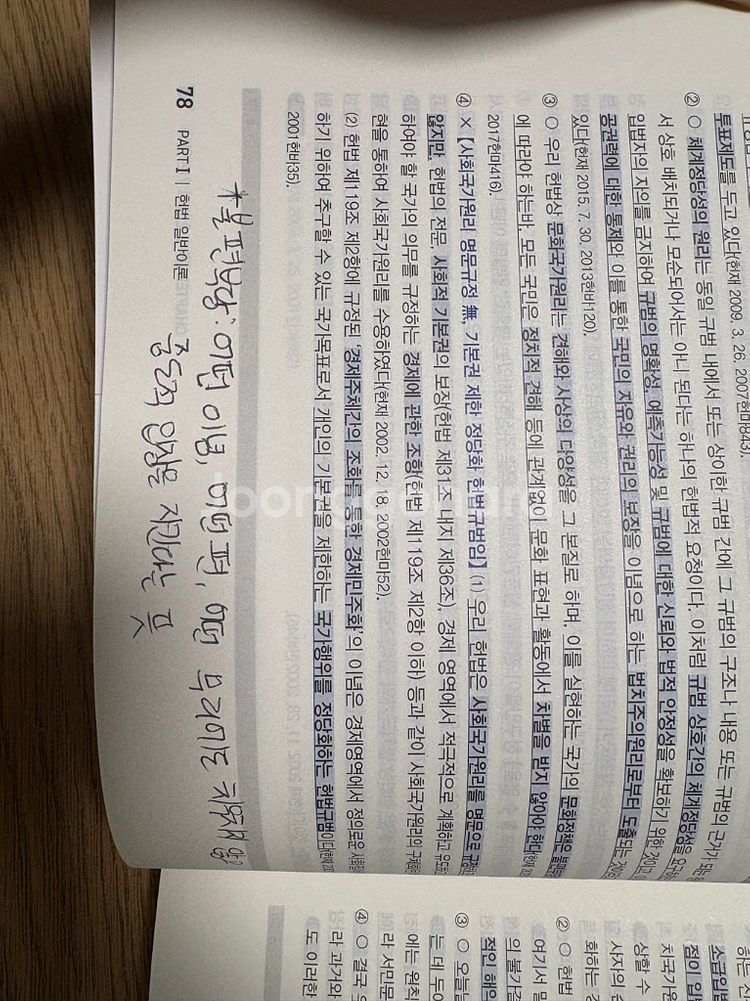 투표제도를 두고 있다(헌재 2009. 3. 26. 2007헌마843).
② ○ 체계정당성의 원리는 동일 규범 내에서 또는 상이한 규범 간에 그 규범의 구조나 내용 또는 규범의 근거가 되는
서 상호 배치되거나 모순되어서는 아니 된다는 하나의 헌법적 요청이다. 이처럼 규범 상호간의 체계정당성을 요구하는
입법자의 자의를 금지하여 규범의 명확성, 예측가능성 및 규범에 대한 신뢰와 법적 안정성을 확보하기 위한 것이고
공권력에 대한 통제와 이를 통한 국민의 자유와 권리의 보장을 이념으로 하는 법치주의원리로부터 도출되는 것이
있다(헌재 2015. 7. 30. 2013헌바120).
③ ○ 우리 헌법상 문화국가원리는 견해와 사상의 다양성을 그 본질로 하며, 이를 실현하는 국가의 문화정책은 불편부
에 따라야 하는바, 모든 국민은 정치적 견해 등에 관계없이 문화 표현과 활동에서 차별을 받지 않아야 한다(헌재
2017헌마416).
④ × 【사회국가원리 명문규정 無, 기본권 제한 정당화 헌법규범임】 (1) 우리 헌법은 사회국가원리를 명문으로 규정하고
않지만, 헌법의 전문, 사회적 기본권의 보장(헌법 제31조 내지 제36조), 경제 영역에서 적극적으로 계획하고 유도하고
하여야 할 국가의 의무를 규정하는 경제에 관한 조항(헌법 제119조 제2항 이하) 등과 같이 사회국가원리의 구체화된
현을 통하여 사회국가원리를 수용하였다(헌재 2002. 12. 18. 2002헌마52).
(2) 헌법 제119조 제2항에 규정된 '경제주체간의 조화를 통한 경제민주화'의 이념은 경제영역에서 정의로운 사회질
하기 위하여 추구할 수 있는 국가목표로서 개인의 기본권을 제한하는 국가행위를 정당화하는 헌법규범이다(헌재
2001헌바35).
*불편부당: 어떤 이념, 어떤 편, 어떤 무리에도 치우쳐 않고
중도적 입장을 지킨다는 뜻
78 PART I | 헌법 일반이론
소급입법
점이 입
처국가
상할 수
사자의
화하는
② ○ 헌법
여기서 말
의 불가
적인 해
③ ○ 오늘
는 데 두어
에는 원칙
라 서민
④ ○ 결국
라 과거와
도 이러한